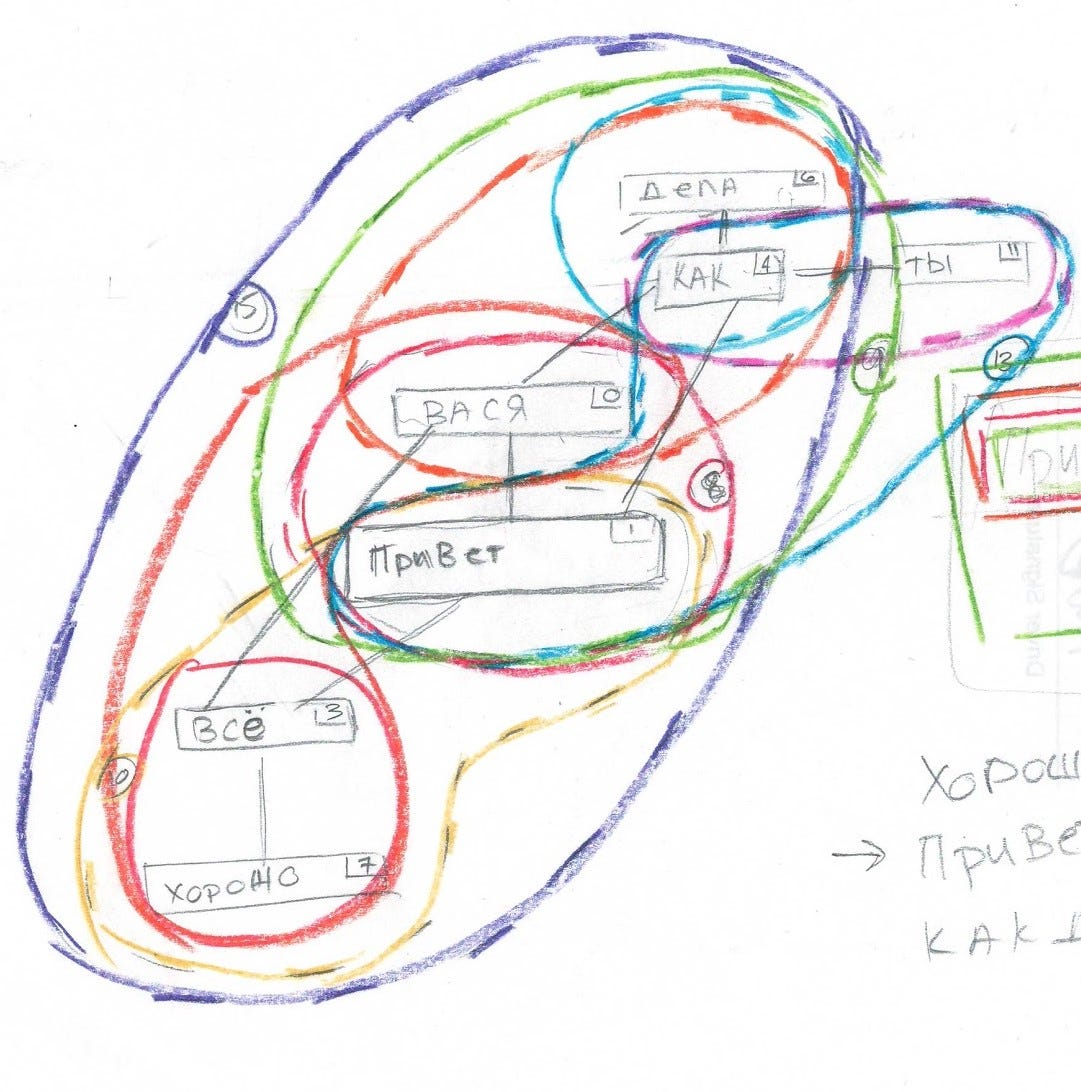 Дела 6
КАК 4
ты 11
15
9
ВАСЯ 0
8
При
Привет 1
Всё 3
10
Хорош
хорошо 7
→ Приве
КАК Д